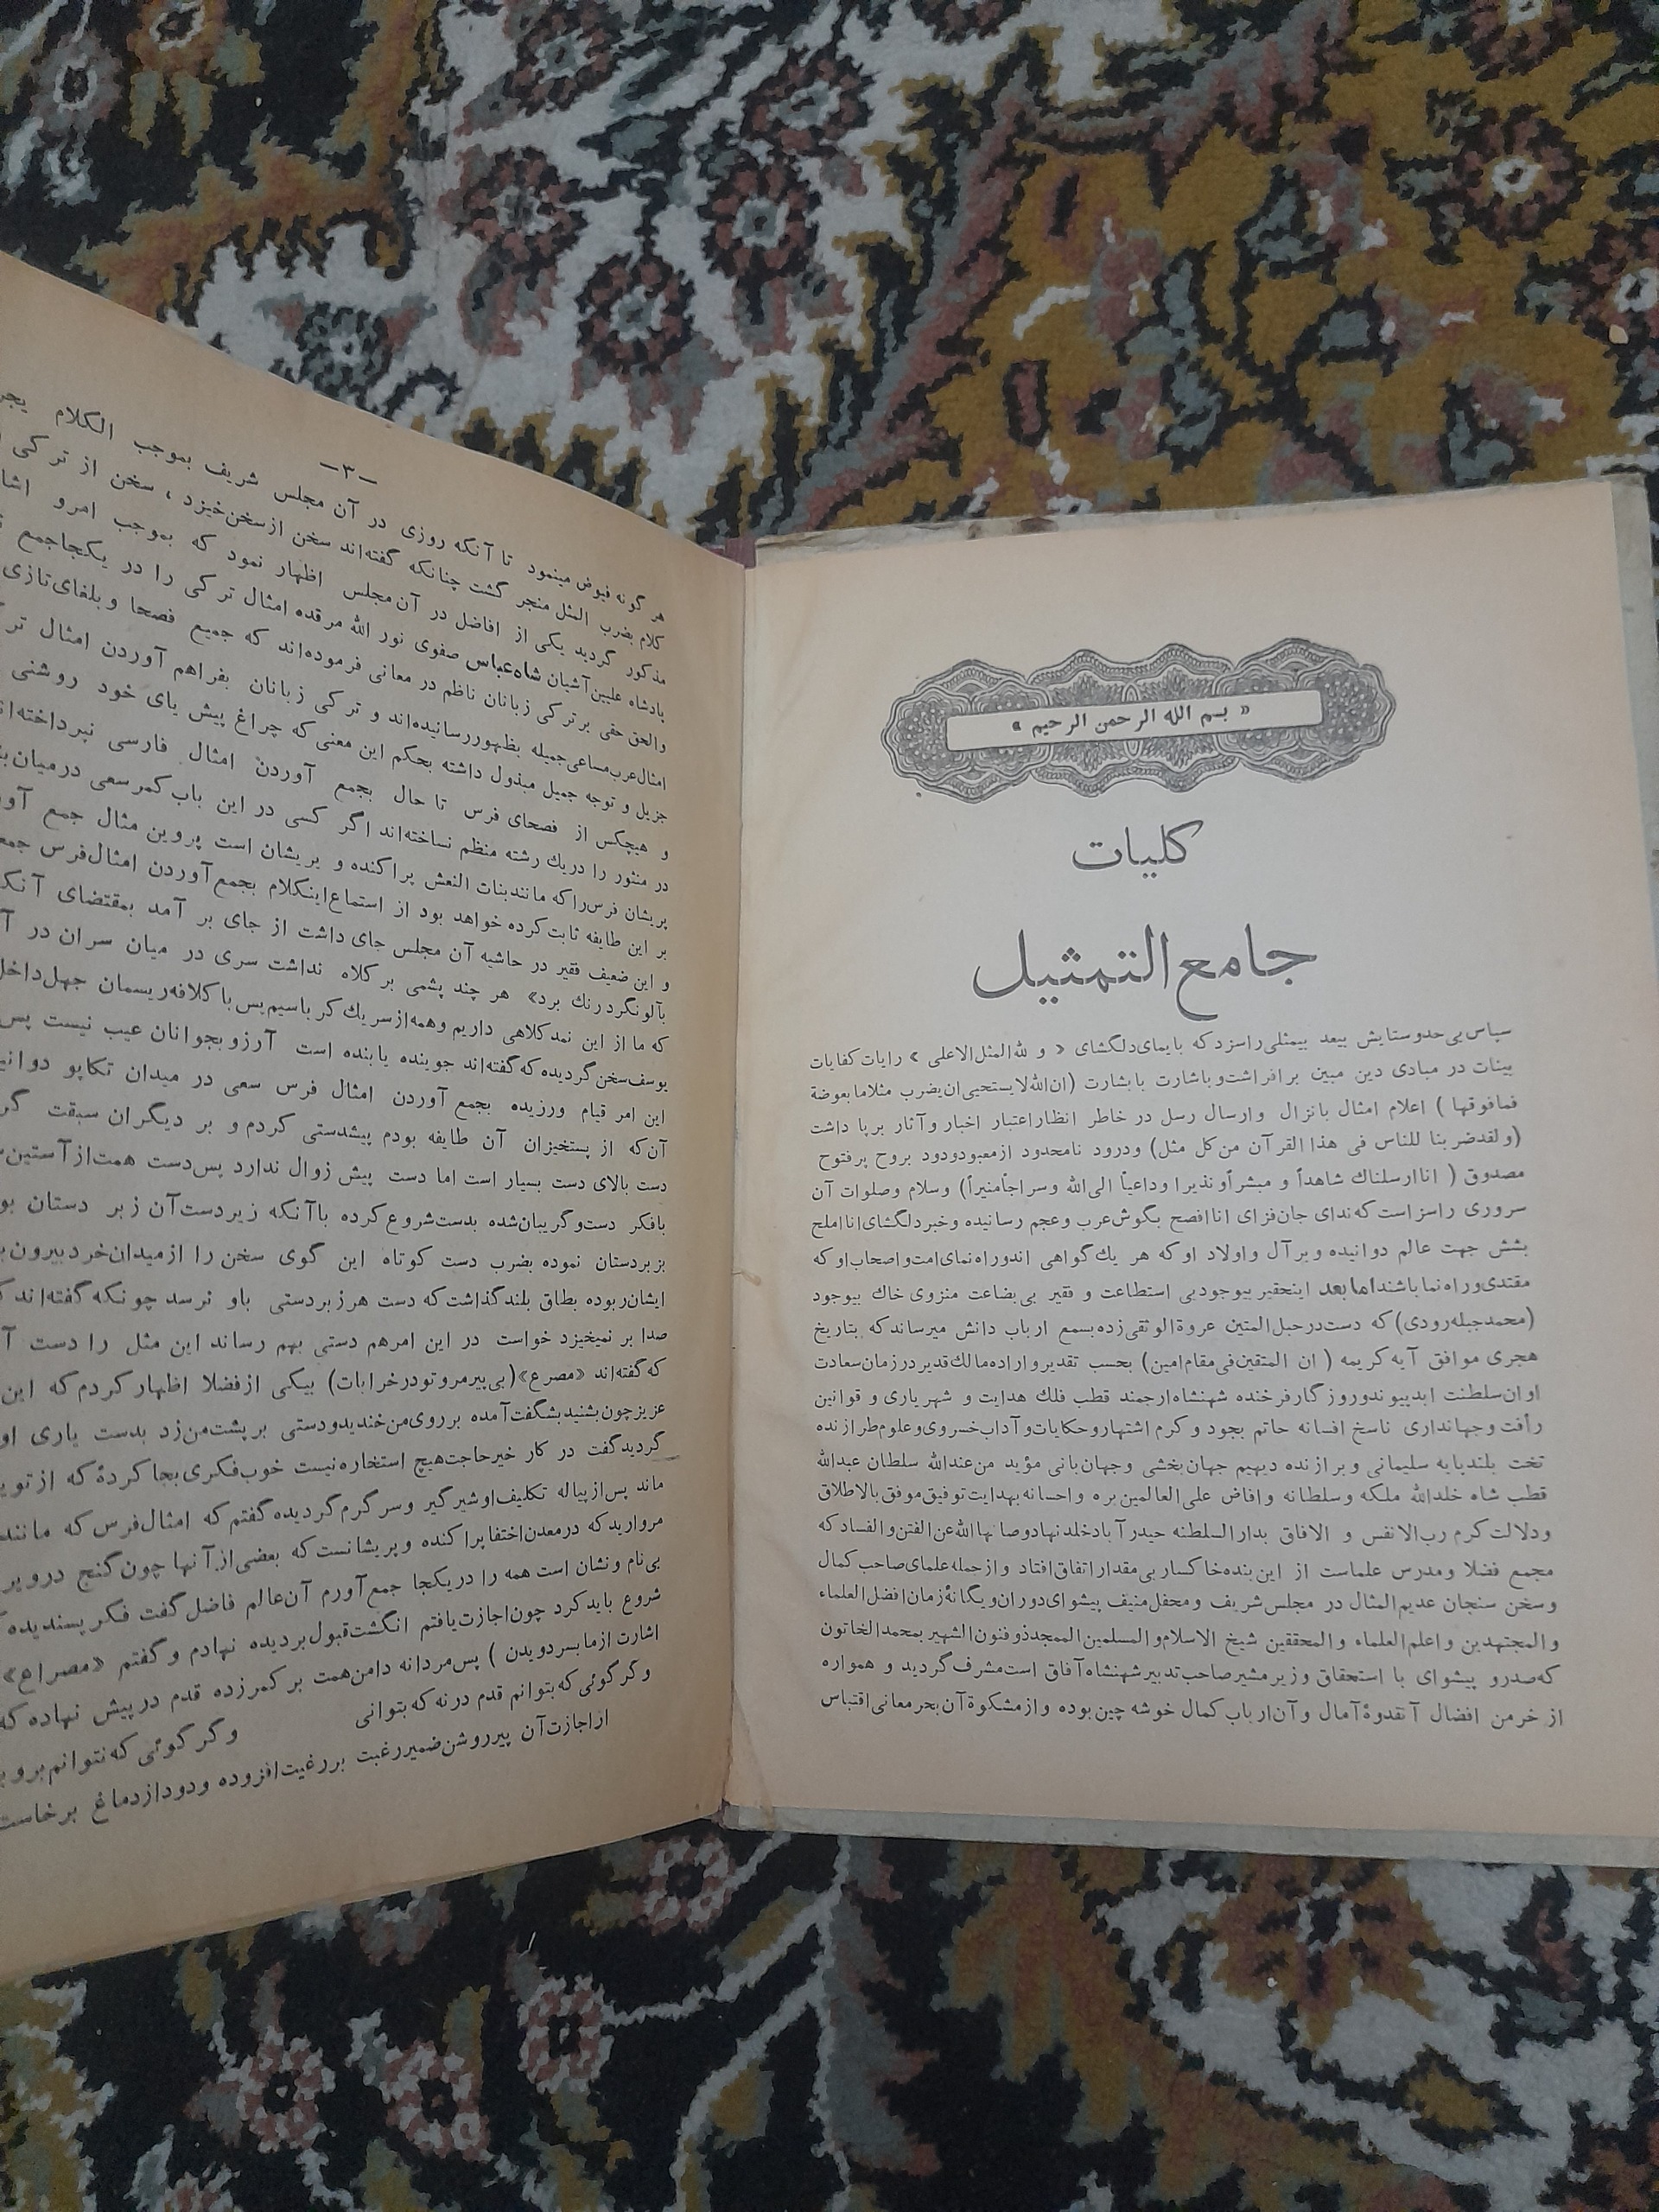 « بسم الله الرحمن الرحیم »
کلیات
جامع التمثیل
سپاس بی حدو ستایش بیعد بیمثلی راسزد که بایمای دلگشای « و لله المثل الاعلی » رایات کفایات
بینات در مبادی دین مبین برافراشت و باشارت بابشارت (ان الله لا یستحیی ان یضرب مثلا ما بعوضة
فمافوقها ) اعلام امثال بانزال وارسال رسل در خاطر انظار اعتبار اخبار و آثار برپا داشت
(ولقد ضربنا للناس فی هذا القرآن من کل مثل) ودرود نامحدود ازمعبود ودود بروح پرفتوح
مصدوق ( انا ارسلناك شاهداً و مبشراً و نذیرا وداعیاً الی الله وسراجاً منیراً) وسلام وصلوات آن
سروری راسزاست که ندای جان فزای انا افصح بگوش عرب وعجم رسانیده وخبر دلگشای انا املح
بشش جهت عالم دوانیده وبرآل واولاد او که هر یك گواهی اندوراه نمای امت و اصحاب او که
مقتدی وراه نما باشند اما بعد اینحقیر بیوجود بی استطاعت و فقیر بی بضاعت منزوی خاك بیوجود
(محمد جبله رودی) که دست در حبل المتین عروة الوثقی زده بسمع ارباب دانش میرساند که بتاریخ
هجری موافق آیه کریمه ( ان المتقین فی مقام امین) بحسب تقدیر و اراده مالك قدیر در زمان سعادت
اوان سلطنت ابد پیوند و روزگار فرخنده شهنشاه ارجمند قطب فلك هدایت و شهریاری و قوانین
رأفت وجهانداری ناسخ افسانه حاتم بجود و کرم اشتهار و حکایات و آداب خسروی و علوم طرازنده
تخت بلندپایه سلیمانی وبرازنده دیهیم جهان بخشی وجهان بانی مؤید من عند الله سلطان عبدالله
قطب شاه خلد الله ملکه وسلطانه وافاض علی العالمین بره واحسانه بهدایت توفیق موفق بالاطلاق
ودلالت کرم رب الانفس و الافاق بدار السلطنه حیدر آباد خلد نهاد وصانها الله عن الفتن والفساد که
مجمع فضلا ومدرس علماست از این بنده خاکسار بی مقدار اتفاق افتاد وازجمله علمای صاحب کمال
وسخن سنجان عدیم المثال در مجلس شریف ومحفل منیف پیشوای دوران ویگانۀ زمان افضل العلماء
والمجتهدین واعلم العلماء والمحققین شیخ الاسلام و المسلمین الممجد ذوفنون الشهیر بمحمد الخاتون
که صدرو پیشوای با استحقاق وزیر مشیر صاحب تدبیر شهنشاه آفاق است مشرف گردید و همواره
از خرمن افضال آنقدوۀ آمال و آن ارباب کمال خوشه چین بوده وازمشکوة آن بحر معانی اقتباس
–۳–
هر گونه فیوض مینمود تا آنکه روزی در آن مجلس شریف بموجب الکلام
کلام بضرب المثل منجر گشت چنانکه گفته اند سخن ازسخن خیزد ، سخن از ترکی
مذکور گردید یکی از افاضل در آن مجلس اظهار نمود که بموجب امرو
پادشاه علیین آشیان شاه عباس صفوی نور الله مرقده امثال ترکی را در یکجا جمع
والحق حقی برترکی زبانان ناظم در معانی فرموده اند که جمیع فصحا و بلغای تازی
امثال عرب مساعی جمیله بظهور رسانیده اند و ترکی زبانان بفراهم آوردن امثال
جزیل و توجه جمیل مبذول داشته بحکم این معنی که چراغ پیش پای خود روشنی
و هیچکس از فصحای فرس تا حال بجمع آوردن امثال فارسی
در منثور را دریك رشته منظم نساخته اند اگر کسی در این باب کمر سعی درمیان
پریشان فرس را که مانند بنات النعش پراکنده و پریشان است پروین مثال جمع
بر این طایفه ثابت کرده خواهد بود از استماع اینکلام بجمع آوردن امثال فرس
و این ضعیف فقیر در حاشیه آن مجلس جای داشت از جای بر آمد بمقتضای
بآلونگرد رنك برد» هر چند پشمی بر کلاه نداشت سری در میان سران در
که ما از این نمد کلاهی داریم وهمه ازسریك کرباسیم پس با کلافه ریسمان جهل داخل
یوسف سخن گردیده که گفته اند جوینده یابنده است آرزو بجوانان عیب نیست پس
این امر قیام ورزیده بجمع آوردن امثال فرس سعی در میدان تکاپو
آن که از پستخیزان آن طایفه بودم پیشدستی کردم و بر دیگران سبقت
دست بالای دست بسیار است اما دست پیش زوال ندارد پس دست همت از آستین
بافکر دست و گریبان شده بدست شروع کرده باآنکه زیردست آن زبر دستان
بزبردستان نموده بضرب دست کوتاه این گوی سخن را از میدان خرد بیرون
ایشان ربوده بطاق بلند گذاشت که دست هر زبردستی باو نرسد چونکه گفته اند
صدا بر نمیخیزد خواست در این امرهم دستی بهم رساند این مثل را دست
که گفته اند «مصرع» (بی پیر مرو تو در خرابات) بیکی ازفضلا اظهار کردم که این
عزیز چون بشنید بشگفت آمده برروی من خندید ودستی برپشت من زد بدست یاری
گردید گفت در کار خیر حاجت هیچ استخاره نیست خوب فکری بجا کردۀ که از
ماند پس از پیاله تکلیف او شیرگیر وسرگرم گردیده گفتم که امثال فرس که مانند
مروارید که درمعدن اختفا پراکنده وپریشانست که بعضی از آنها چون گنج
بی نام ونشان است همه را دریکجا جمع آورم آن عالم فاضل گفت فکر پسندیده
شروع باید کرد چون اجازت یافتم انگشت قبول بردیده نهادم و گفتم «مصراع»
اشارت ازما بسر دویدن ) پس مردانه دامن همت بر کمر زده قدم در پیش نهاده که
وگر گوئی که بتوانم قدم در نه که بتوانی وگر گوئی که نتوانم برو
ازاجازت آن پیر روشن ضمیر رغبت بررغبت افزوده ودود از دماغ برخاست